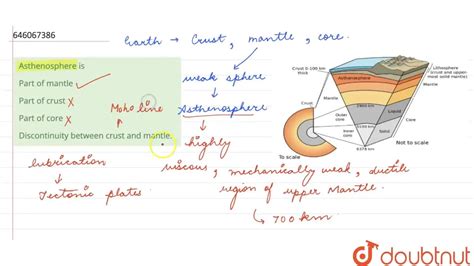 646067386
Earth → Crust, mantle, core.
Asthenosphere is
Part of mantle
Part of crust X
Part of core X
Discontinuity between crust and mantle.
Moho line
weak sphere
Asthenosphere
highly
viscous, mechanically weak, ductile
region of upper Mantle.
↳ 700 km.
lubrication
Tectonic plates.
Crust 0-100 km
thick
Asthenosphere
Lithosphere
(crust and upper-
most solid mantle)
Mantle
2900 km
Outer
core
Liquid
Core
5100 km
Inner
core
Solid
6378 km
Crust
Mantle
To scale
Not to scale
doubtnut